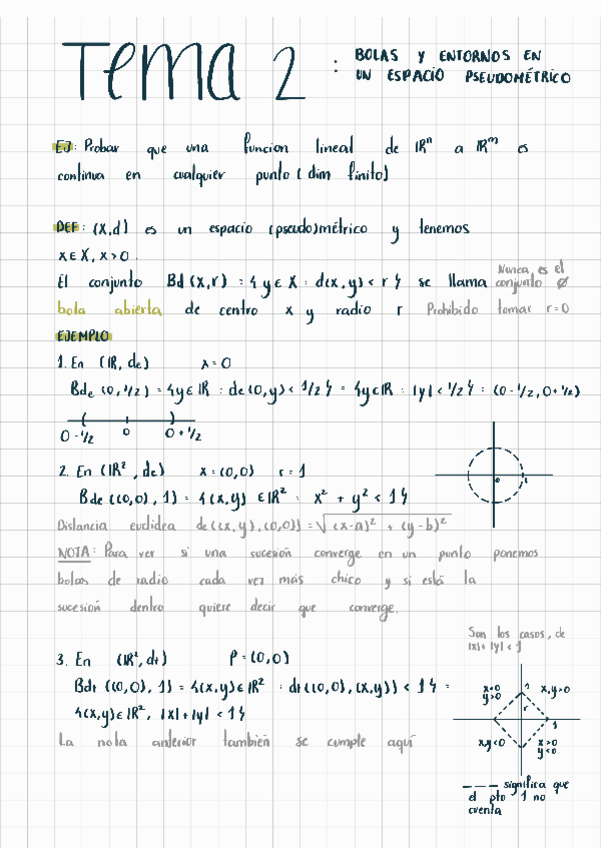 Tema 2 : BOLAS Y ENTORNOS EN
UN ESPACIO PSEUDOMÉTRICO
EJ: Probar que una funcion lineal de ℝⁿ a ℝᵐ es
continua en cualquier punto (dim finito)
DEF: (X,d) es un espacio (pseudo)métrico y tenemos
x∈X, x>0.
El conjunto Bd(x,r) = {y∈X : d(x,y)<r} se llama
Nunca es el
conjunto ∅
bola abierta de centro x y radio r Prohibido tomar r=0
EJEMPLO
1. En (ℝ, de) x=0
Bde (0,1/2) = {y∈ℝ : de(0,y)<1/2} = {y∈ℝ : |y|<1/2} = (0-1/2, 0+1/2)
0-1/2 0 0+1/2
2. En (ℝ², de) x=(0,0) r=1
Bde((0,0),1) = {(x,y) ∈ℝ² : x² + y² < 1}
Distancia euclidea de((x,y),(0,0)) = √(x-a)² + (y-b)²
NOTA: Para ver si una sucesión converge en un punto ponemos
bolas de radio cada vez más chico y si está la
sucesión dentro quiere decir que converge.
Son los casos, de
|x|+|y|<1
3. En (ℝ², dt) P=(0,0)
Bdt ((0,0),1) = {(x,y)∈ℝ² : dt((0,0),(x,y)) < 1} =
{(x,y)∈ℝ², |x|+|y|<1}
La nota anterior también se cumple aquí
x<0
y>0
1
x,y>0
r
1
x,y<0
x>0
y<0
--- significa que
el pto 1 no
cuenta